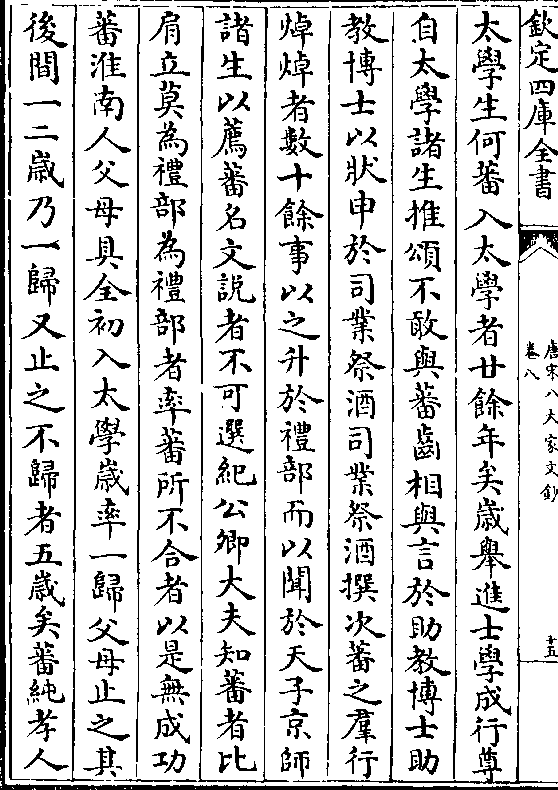 欽定四庫全書
唐宋八大家文鈔
卷八
十五
太學生何蕃入太學者廿餘年矣歲舉進士學成行尊
自太學諸生推頌不敢與蕃齒相與言於助教博士助
教博士以狀申於司業祭酒司業祭酒撰次蕃之羣行
焯焯者數十餘事以之升於禮部而以聞於天子京師
諸生以薦蕃名文說者不可選紀公卿大夫知蕃者比
肩立莫為禮部為禮部者率蕃所不合者以是無成功
蕃淮南人父母具全初入太學歲率一歸父母止之其
後間一二歲乃一歸又止之不歸者五歲矣蕃純孝人